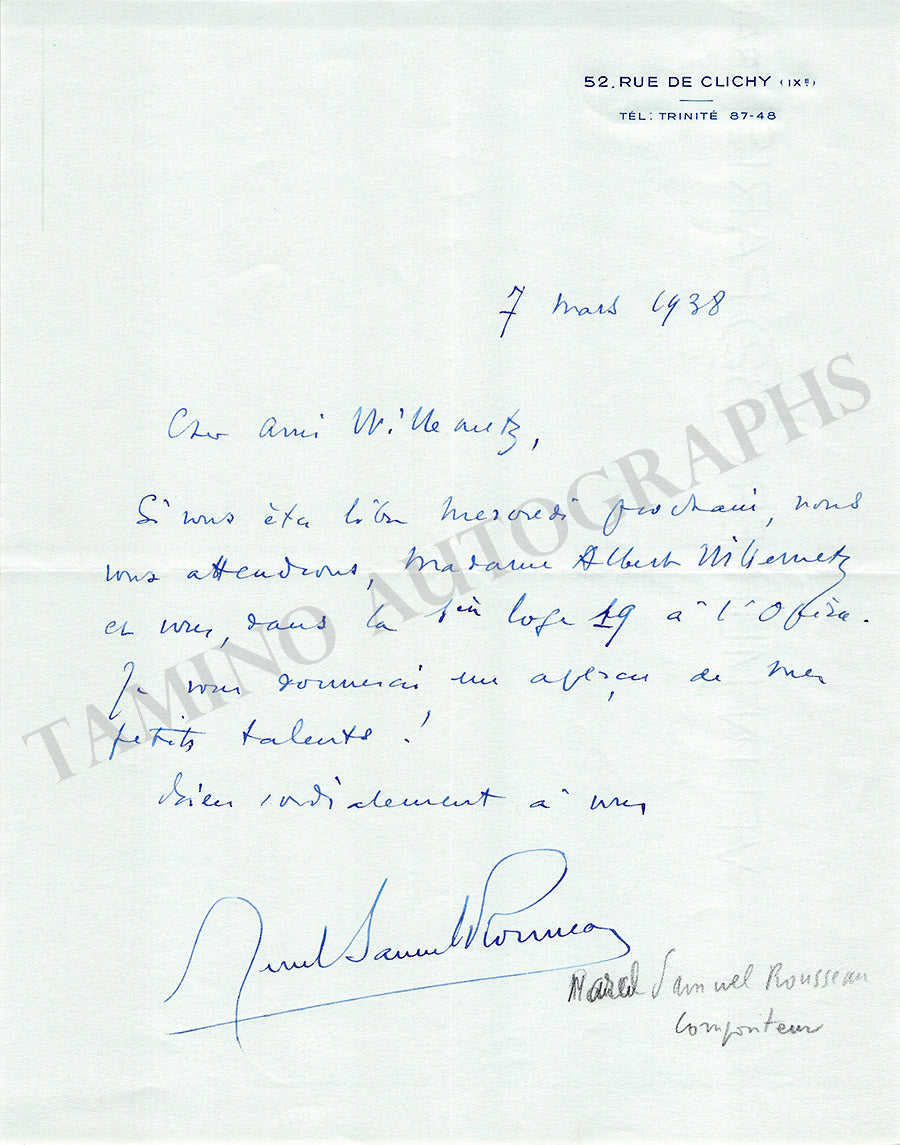 52, RUE DE CLICHY (IXE)
TÉL: TRINITÉ 87-48
7 mars 1938
Cher ami Willemetz,
Si vous êtes libre mercredi prochain, nous
vous attendrons, Madame Albert Willemetz
et vous, dans la 1ère loge 19 à l'Opéra.
Je vous donnerai un aperçu de mes
petits talents !
Bien cordialement à vous
Marcel Samuel Rousseau
Marcel Samuel Rousseau
Compositeur
TAMINO AUTOGRAPHS